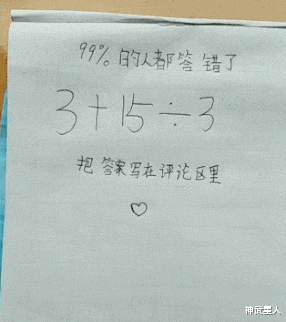 99% 的人都答错了
3+15÷3
把答案写在评论区里
♡
神武星人